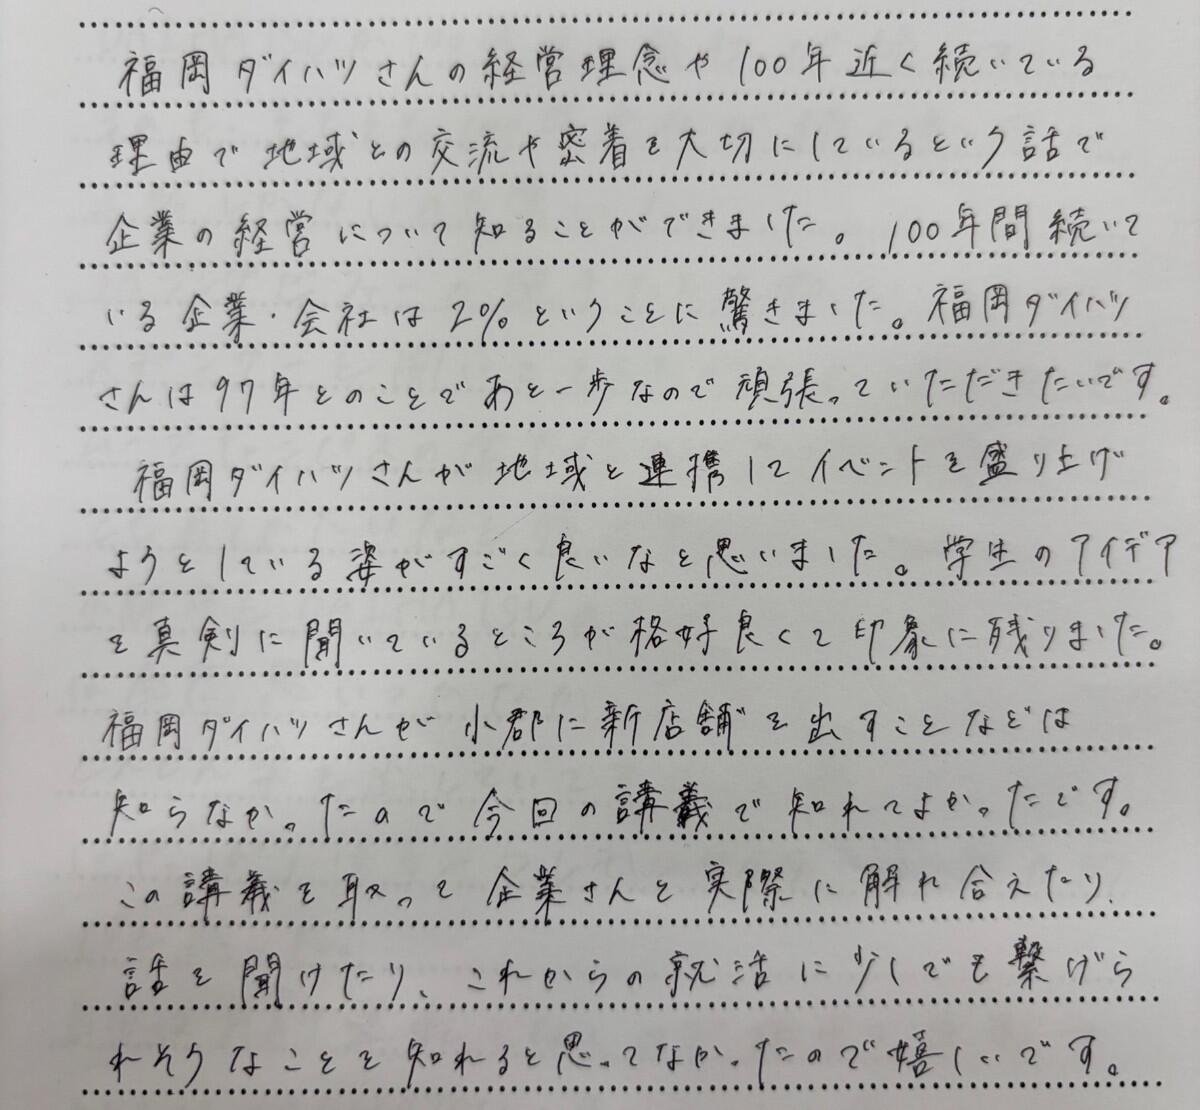 福岡ダイハツさんの経営理念や100年近く続いている
理由で地域との交流や密着を大切にしているという話で
企業の経営について知ることができました。100年間続いて
いる企業・会社は2%ということに驚きました。福岡ダイハツ
さんは97年とのことであと一歩なので頑張っていただきたいです。
福岡ダイハツさんが地域と連携してイベントを盛り上げ
ようとしている姿がすごく良いなと思いました。学生のアイデア
を真剣に聞いているところが格好良くて印象に残りました。
福岡ダイハツさんが小郡に新店舗を出すことなどは
知らなかったので今回の講義で知れてよかったです。
この講義を取って企業さんと実際に触れ合えたり、
話を聞けたり、これからの就活に少しでも繋げら
れそうなことを知れると思ってなかったので嬉しいです。